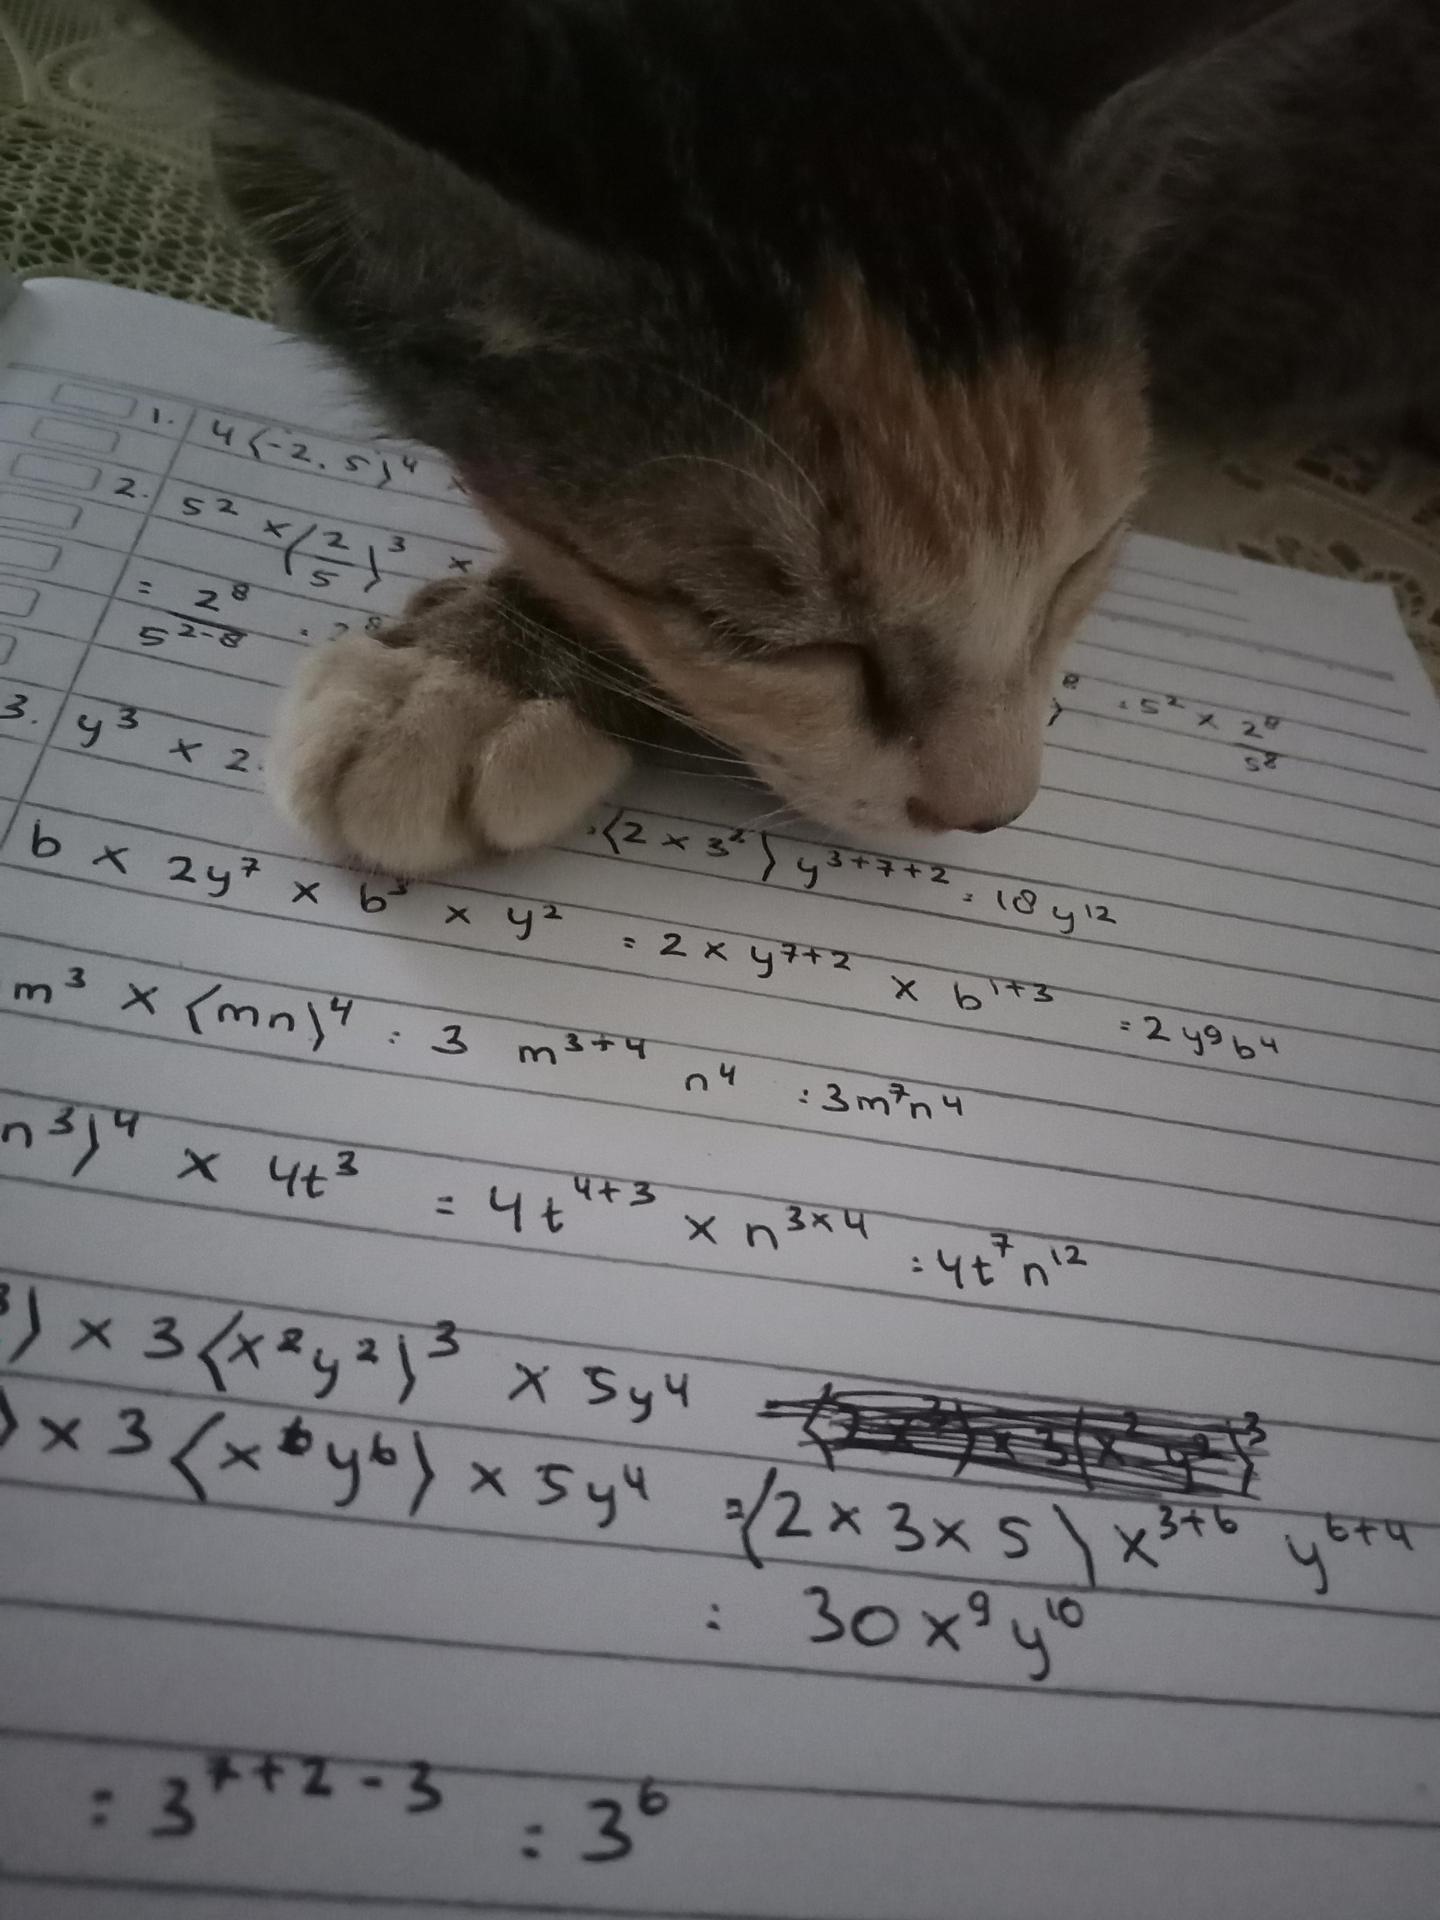 1. 4(-2,5)⁴ ×
2. 5² × (2/5)³ ×
⁸ = 5² × 2⁸/5⁸
= 2⁸/5²⁻⁸ = 2⁸
3. y³ × 2
= (2 × 3²) y³⁺⁷⁺² = 18y¹²
b × 2y⁷ × b³ × y² = 2 × y⁷⁺² × b¹⁺³ = 2y⁹b⁴
m³ × (mn)⁴ = 3 m³⁺⁴ n⁴ = 3m⁷n⁴
n³)⁴ × 4t³ = 4t⁴⁺³ × n³ˣ⁴ = 4t⁷n¹²
³) × 3(x²y²)³ × 5y⁴
) × 3(x⁶y⁶) × 5y⁴ = (2 × 3 × 5) x³⁺⁶ y⁶⁺⁴
= 30x⁹y¹⁰
= 3⁷⁺²⁻³ = 3⁶